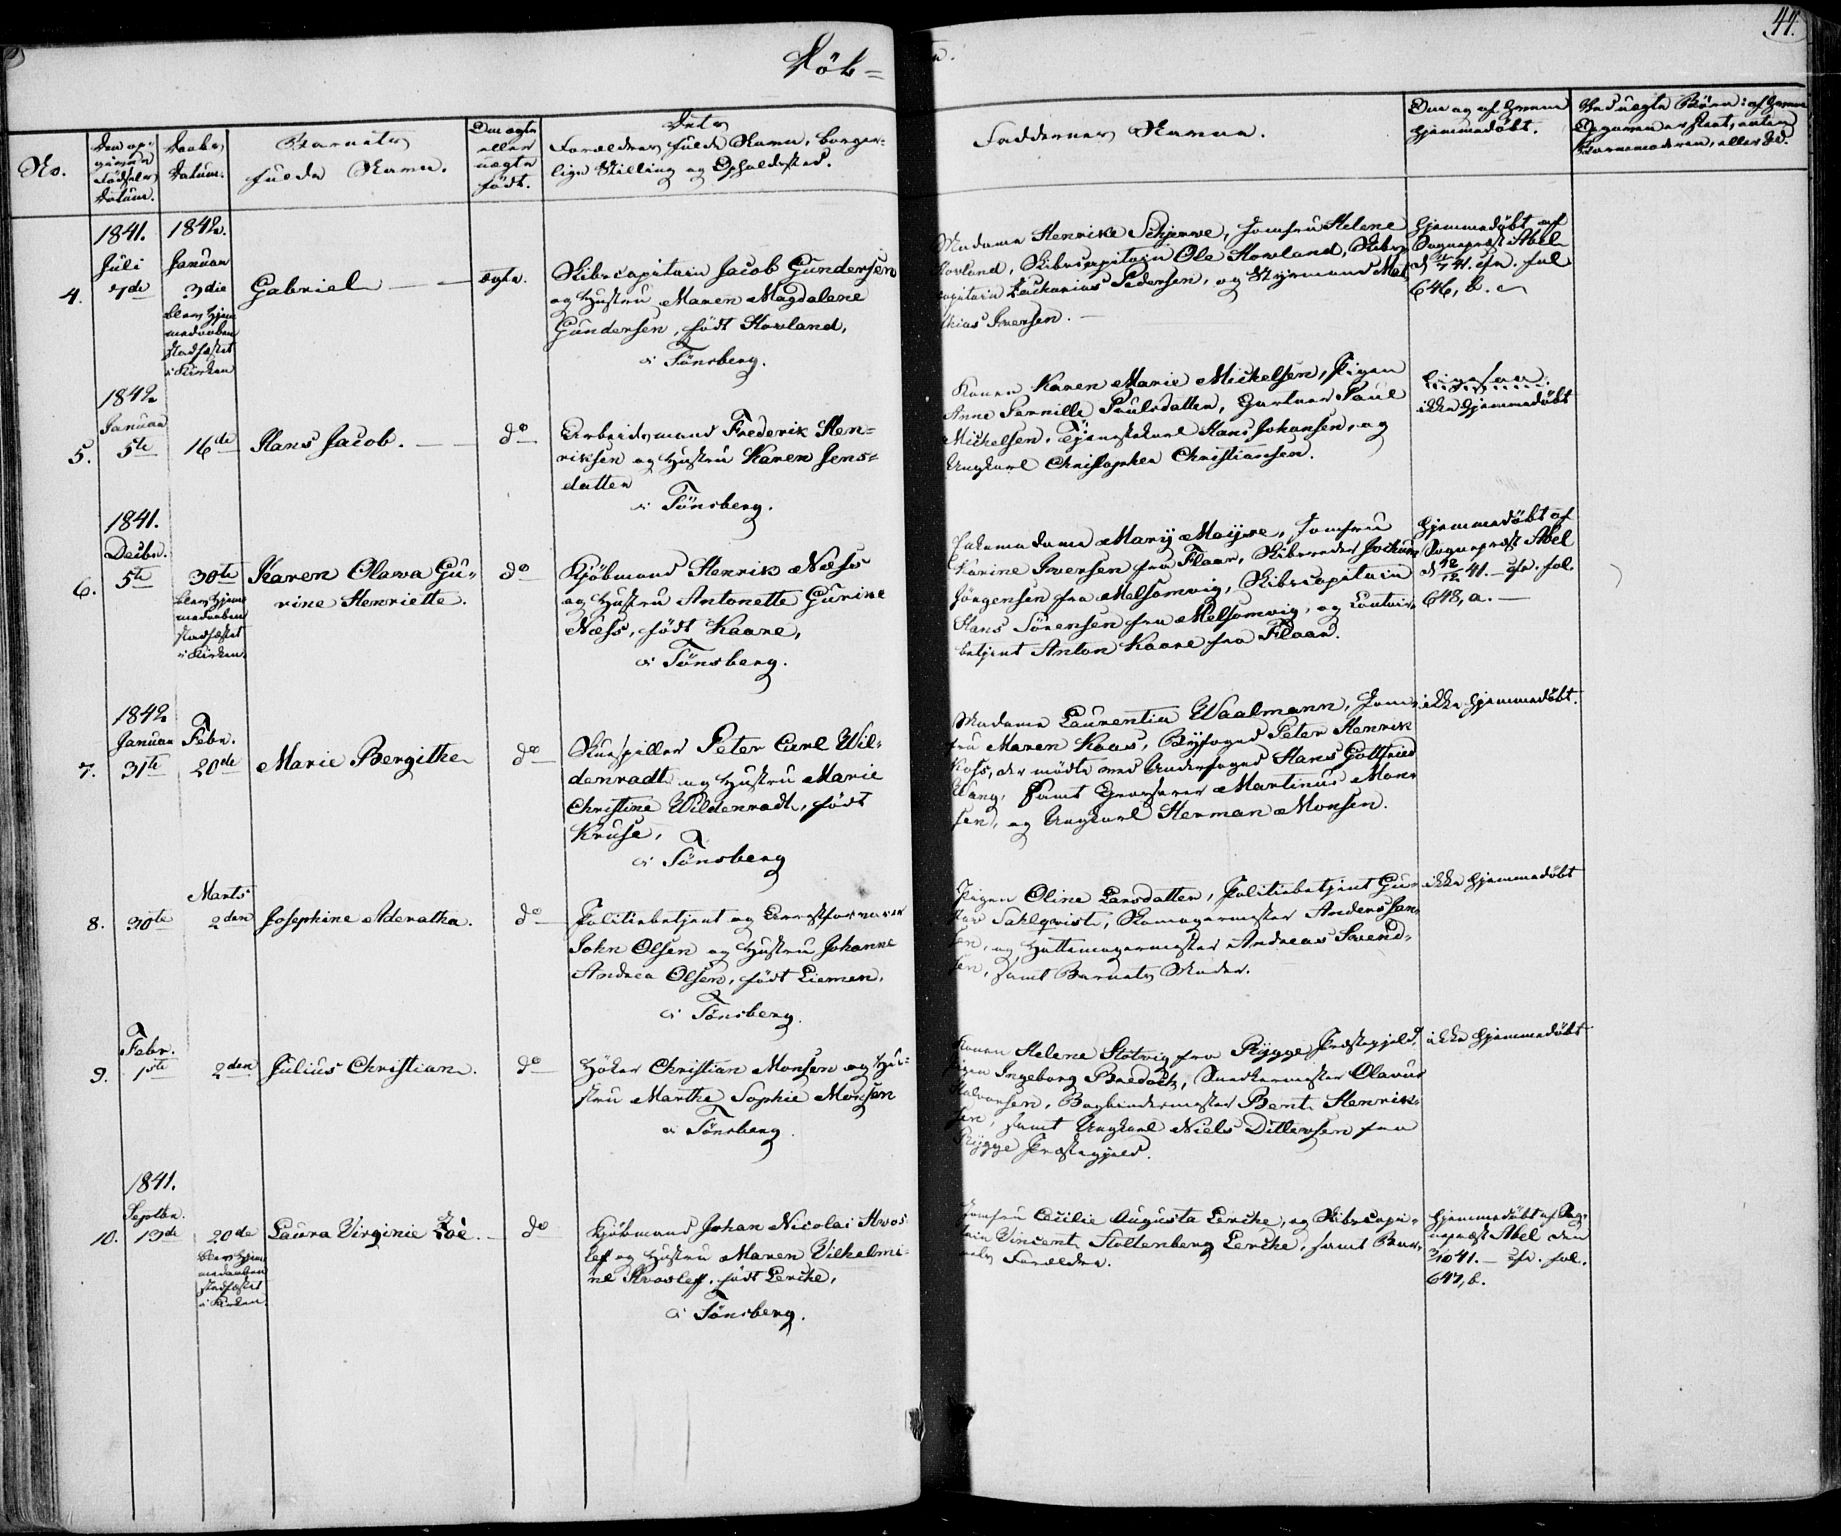 Døb=
e.
44.
No.
Den op-
givne
Fødsels
Datum.
Daabs
Datum.
Barnets
fulde Navn.
Om ægte
eller
uægte
født.
Dets
Forældres fulde Navn, borger-
lige Stilling og Opholdssted.
Faddernes Navne.
Om og af hvem
hjemmedøbt.
Ved uægte Børn: af hvem
Opgaven er skeet, enten
Barnemoderen, eller
4.
1841.
Juli
7de
1842.
Januar
3die
blev hjem
medaaben
stadfæstet
i Kirken
Gabriel
ægte.
Skibscapitain Jacob Gundersen
og Hustru Maren Magdalene
Gundersen, født Howland,
i Tönsberg.
Madame Henrike Schjerve, Jomfru Helene
Howland, Skibscapitain Ole Howland, Skibs-
capitain Zacharias Pedersen, og Styrmand Mat-
thias Iversen.
hjemmedøbt af
Sognepræst Abel
41. cfr. fol
646, b.
5.
1842
Januar
5te
16de
Hans Jacob.
do
Arbeidsmand Frederik Hen-
riksen og Hustru Karen Jens-
datter
i Tönsberg.
Konen Karen Marie Mickelsen, Pigen
Anne Pernille Paulsdatter, Gartner Paul
Mickelsen, Tjenestekarl Hans Johansen, og
Ungkarl Christopher Christiansen.
ikke hjemmedøbt
6.
1841.
Decbr.
5te
30te
blev hjem
medaaben
stadfæstet
i Kirken.
Karen Olava Gu-
rine Henriette.
do
Kjöbmand Henrik Næss
og Hustru Antonette Gurine
Næss, født Kaare,
i Tönsberg.
Marÿ Meÿer, Jomfru
Karine Iversen fra Flaar, Skibsreder Jochum
Jörgensen fra Melsomvig, Skibscapitain
Hans Sörensen fra Melsomvig, og Contoir-
betjent Anton Kaare fra Flaar.
hjemmedøbt af
Sognepræst Abel
d 12/12 41. – cfr. fol.
648, a. –
7.
1842
Januar
31te
Febr.
20de
Marie Bergithe
do
Skuespiller Peter Carl Wil-
denradt og Hustru Marie
Christine Wildenradt, født
Kruse,
i Tönsberg
Madame Laurentia Waalmann, Jom-
fru Maren Koss, Bÿfoged Peter Henrik
Koss, der mødte ved Underfoged Hans Gottfried
Wang, samt Graverer Martinus Mon-
sen, og Ungkarl Herman Monsen.
ikke hjemmedøbt.
8.
30te
Marts
2den
Josephine Aderatha.
do
Politiebetjent og Arrestforvarer
John Olsen og Hustru Johanne
Andrea Olsen, født Liemen,
i Tönsberg.
Pigen Oline Larsdatter, Politiebetjent Gu-
stav Sahlqvist, Skomagermester Anders Han-
sen, og Hattemagermester Andreas Svend-
sen, samt Barnets Moder.
ikke hjemmedøbt
9.
Febr.
1ste
2den
Julius Christian.
do
Höker Christian Monsen og Hu-
stru Marthe Sophie Monsen
i Tönsberg.
Konen Helene Slotvig fra Rÿgge Præstegjeld,
Pigen Ingeborg Bredoch, Snedkermester Olavus
Halvorsen, Bogbindermester Bent Henrik-
sen, samt Ungkarl Niels Ditlevsen fra
Rÿgge Præstegjeld.
ikke hjemmedøbt
10.
1841.
Septbr.
13de
20de
blev hjem
medaaben
stadfæstet
i Kirken.
Laura Virginie Zoë.
do
Kjöbmand Johan Nicolai Hvos-
lef og Hustru Maren Vilhelmi-
ne Hvoslef, født Lerche,
i Tönsberg.
Jomfru Cecilie Augusta Lerche, og Skibscapi-
tain Vincent Stoltenberg Lerche, samt Bar-
nets Forældre.
hjemmedøbt af Sog-
nepræst Abel den
41. – cfr. fol.
647, b.